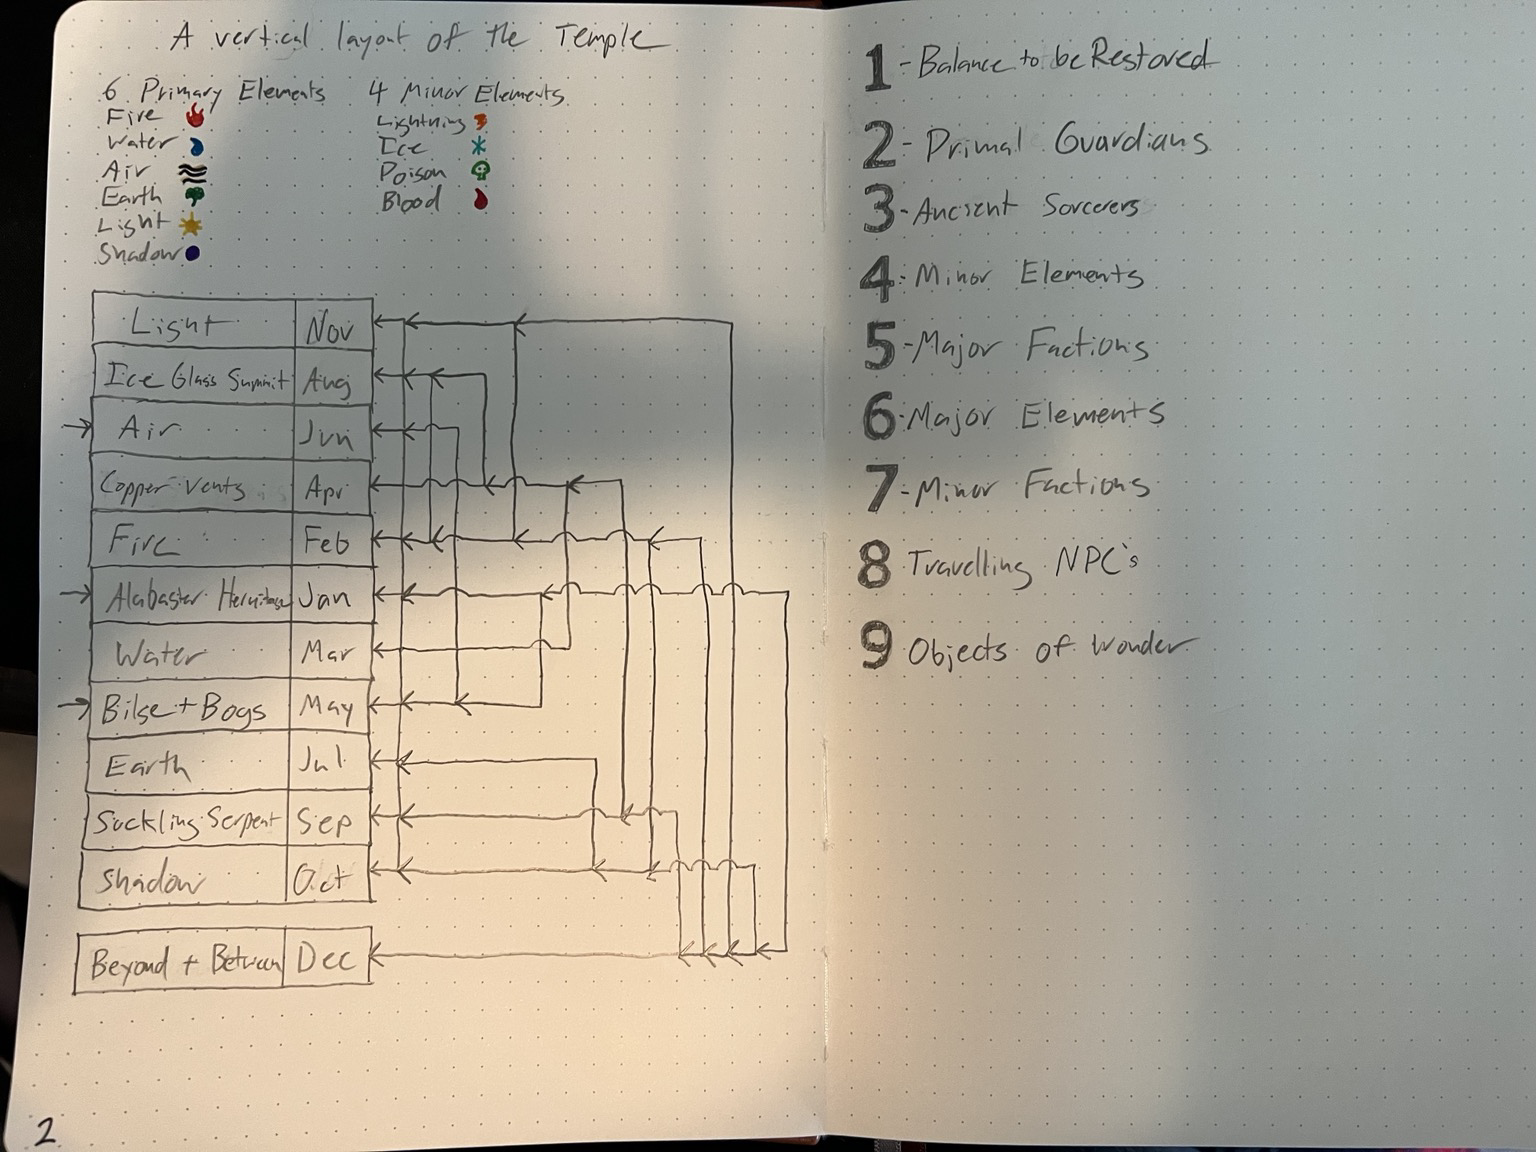 A vertical layout of the Temple
6 Primary Elements
Fire
Water
Air
Earth
Light
Shadow
4 Minor Elements
Lightning
Ice
Poison
Blood
Light Nov
Ice Glass Summit Aug
Air Jun
Copper Vents Apr
Fire Feb
Alabaster Hermitage Jan
Water Mar
Bilge + Bogs May
Earth Jul
Suckling Serpent Sep
Shadow Oct
Beyond + Between Dec
2
1 - Balance to be Restored
2 - Primal Guardians
3 - Ancient Sorcerers
4 - Minor Elements
5 - Major Factions
6 - Major Elements
7 - Minor Factions
8 Travelling NPC's
9 Objects of Wonder